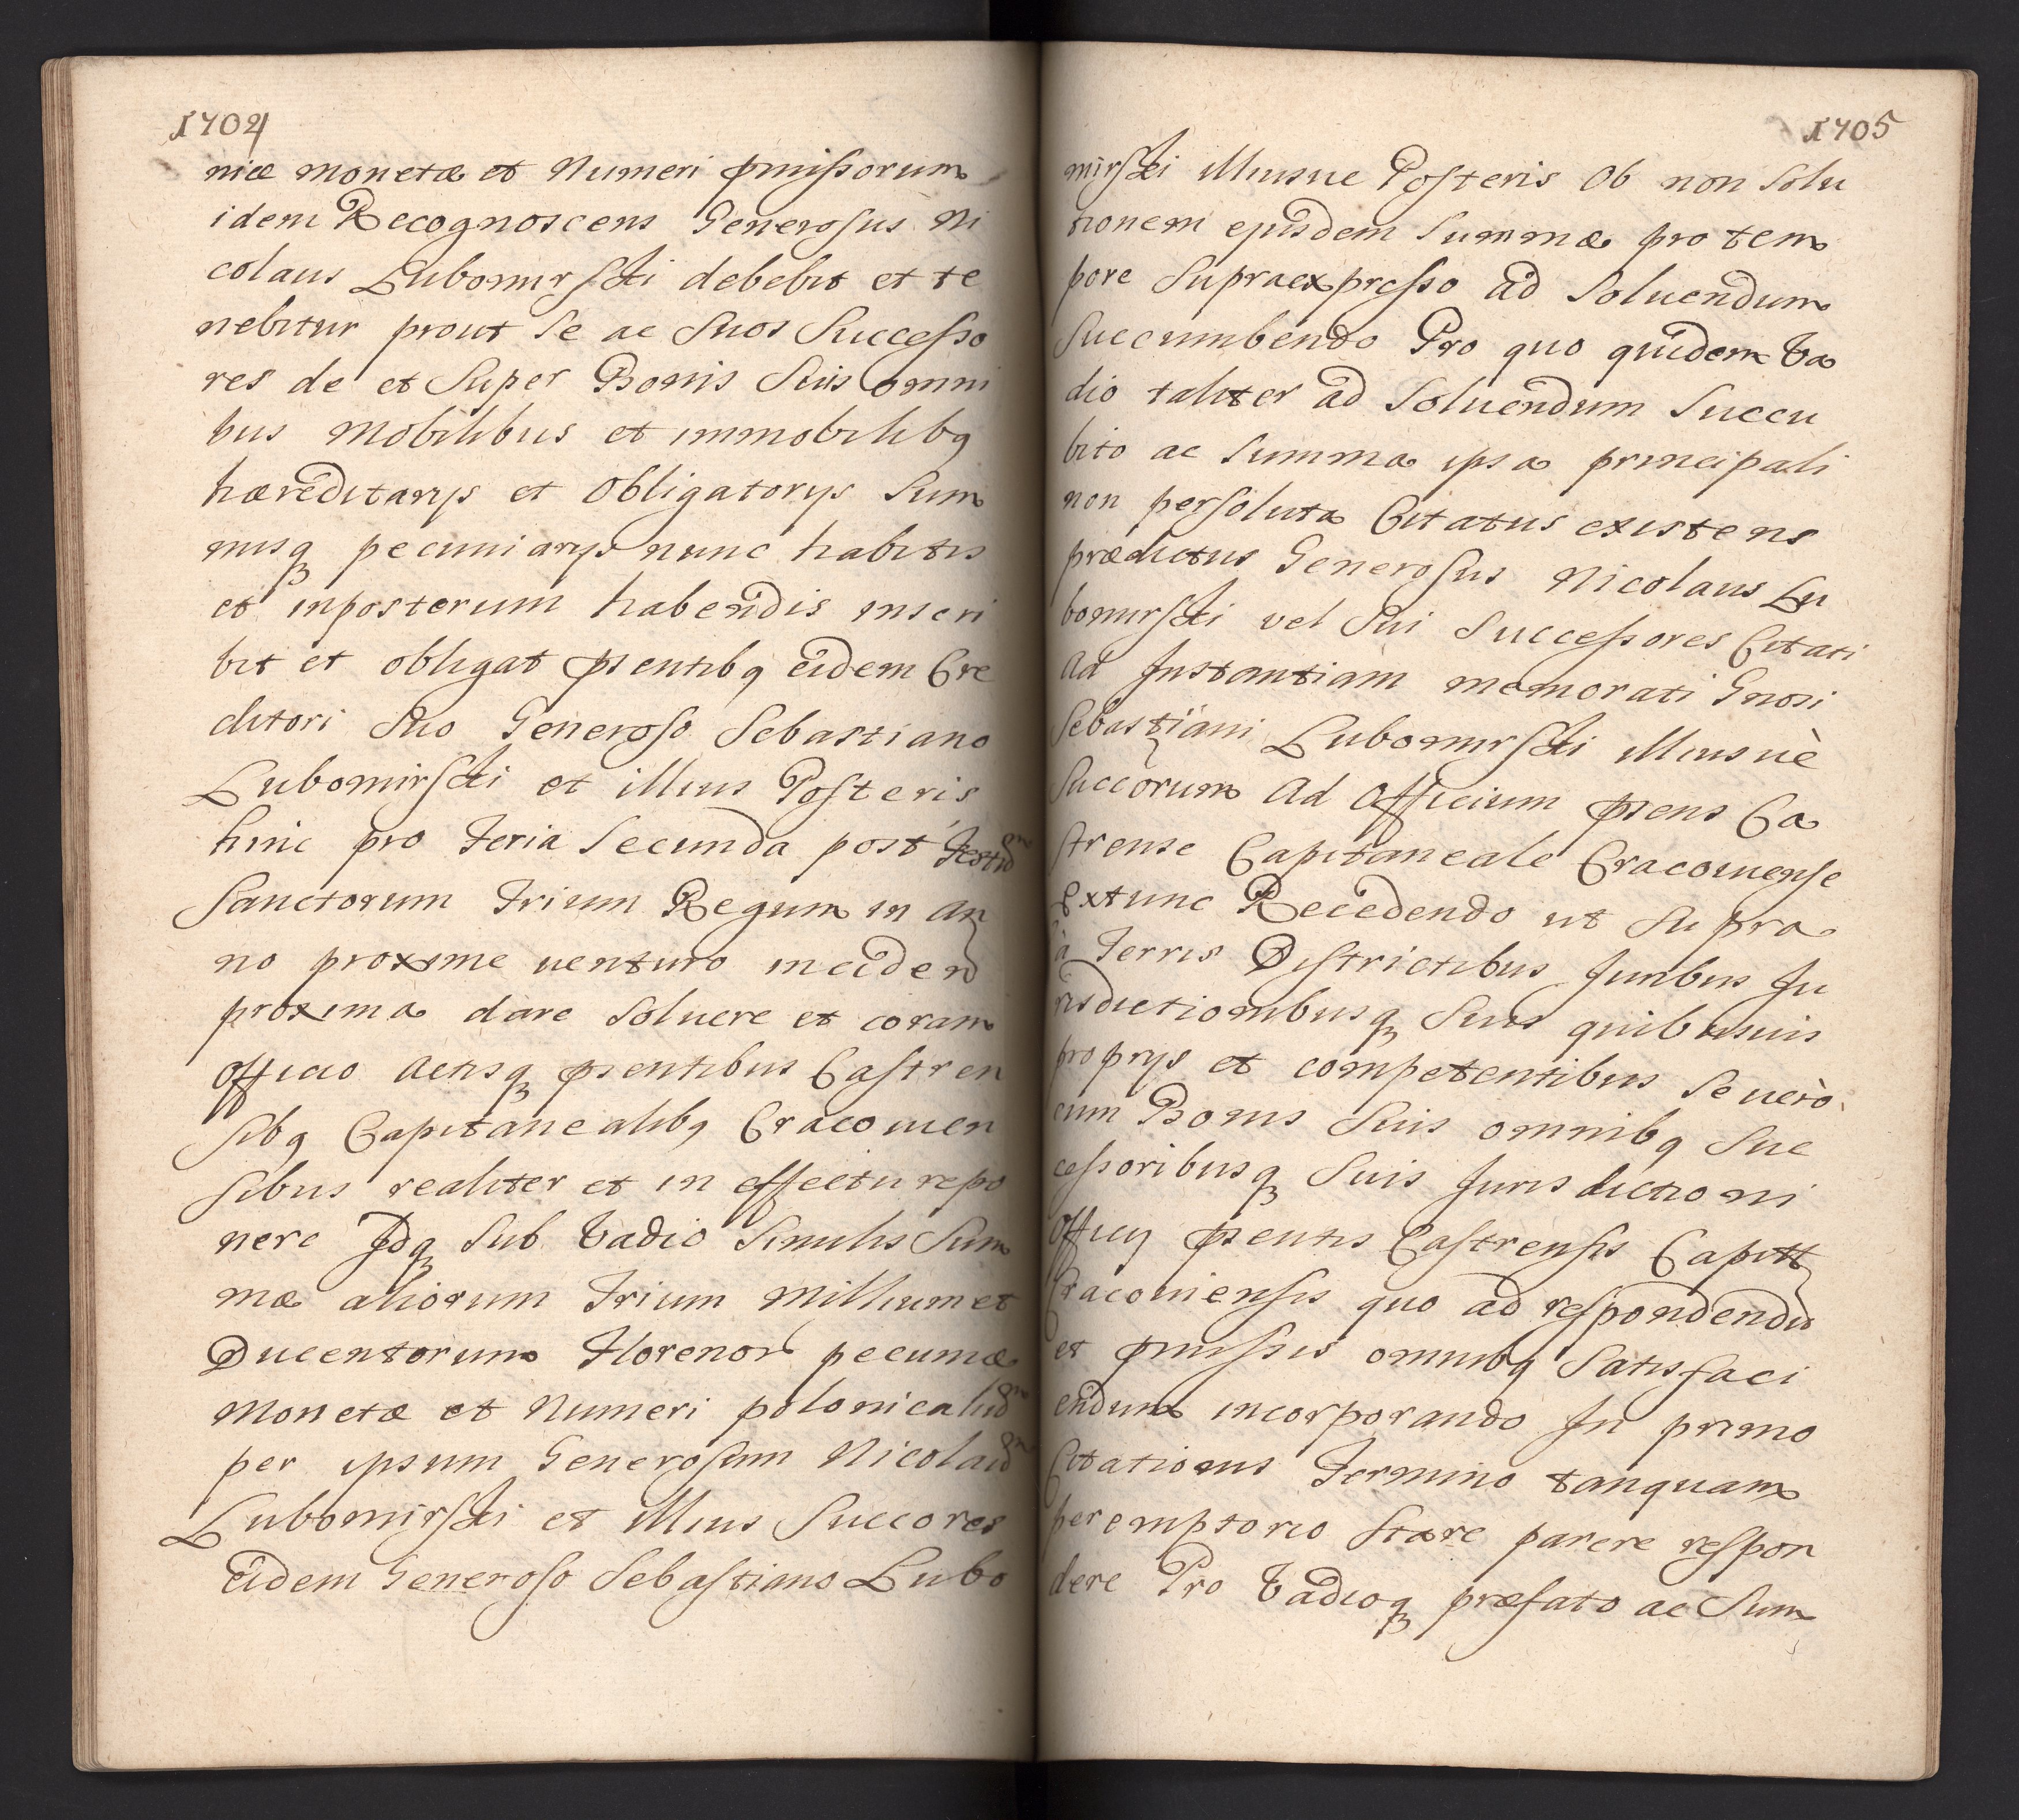 1704
nicæ monetæ et Numeri pmissorum
idem Recognoscens Generosus Ni
colaus Lubomirski debebit et te
nebitur prout Se ac Suos Successo
res de et Super Bonis Suis omni
bus Mobilibus et immobilibq
hæreditarys et Obligatorys Sum
misq pecuniarys nunc habitis
et inposterum habendis inscri
bit et obligat psentibq eidem Cre
ditori Suo Generoso Sebastiano
Lubomirski et illius Posteris
hinc pro Feria Secunda post Festum
Sanctorum Trium Regum in An
no proxime venturo inciden
proxima dare Soluere et coram
officio Actisq psentibus Castren
sibq Capitanealibq Cracovien
sibus realiter et in effectu repo
nere Idq Sub Vadio Similis Sum
mæ aliorum Trium Millium et
Ducentorum Florenor pecuniæ
Monetæ et Numeri polonicalium
per ipsum Generosum Nicolaum
Lubomirski et illius Succores
Eidem Generoso Sebastiano Lubo
1705
mirski illiusue Posteris Ob non Solu
tionem ejusdem Summæ pro tem
pore Supraexpresso ad Soluendum
Succumbendo Pro quo quidem Va
dio taliter ad Soluendum Succu
bito ac Summa ipsa principali
non persoluta Citatus existens
prædictus Generosus Nicolaus Lu
bomirski vel Sui Successores Citati
Ad Instantiam memorati Gnosi
Sebastiani Lubomirski illiusuè
Succorum Ad Officium psens Ca
strense Capitaneale Cracouiense
Extunc Recedendo ut Supra
à Terris Districtibus Juribus Ju
risdictionibusq Suis quibusuis
proprys et competentibus Se uerò
cum Bonis Suis omnibq Suc
cessoribusq Suis Jurisdictioni
Officy psentis Castrensis Capitt
Cracouiensis quo ad respondendum
et pmissis omnibq Satisfaci
endum incorporando In primo
Citationis Termino tanquam
peremptorio Stare parere respon
dere Pro Vadioq præfato ac Sum